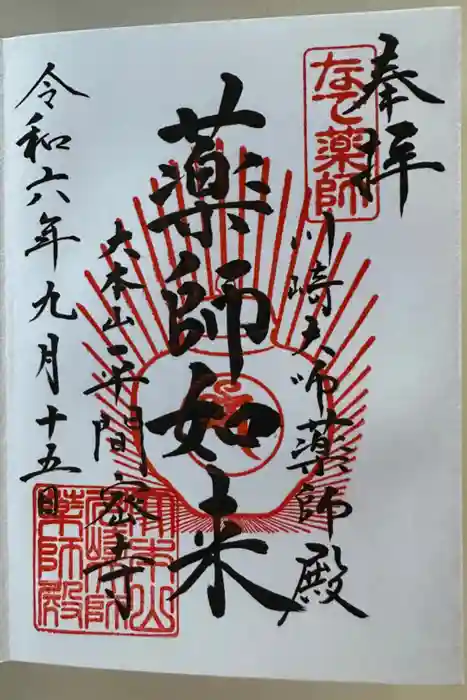 奉拝
なで薬師
川崎大師薬師殿
薬師如来
大本山平間密寺
令和六年九月十五日
大本山
川崎大師
薬師殿